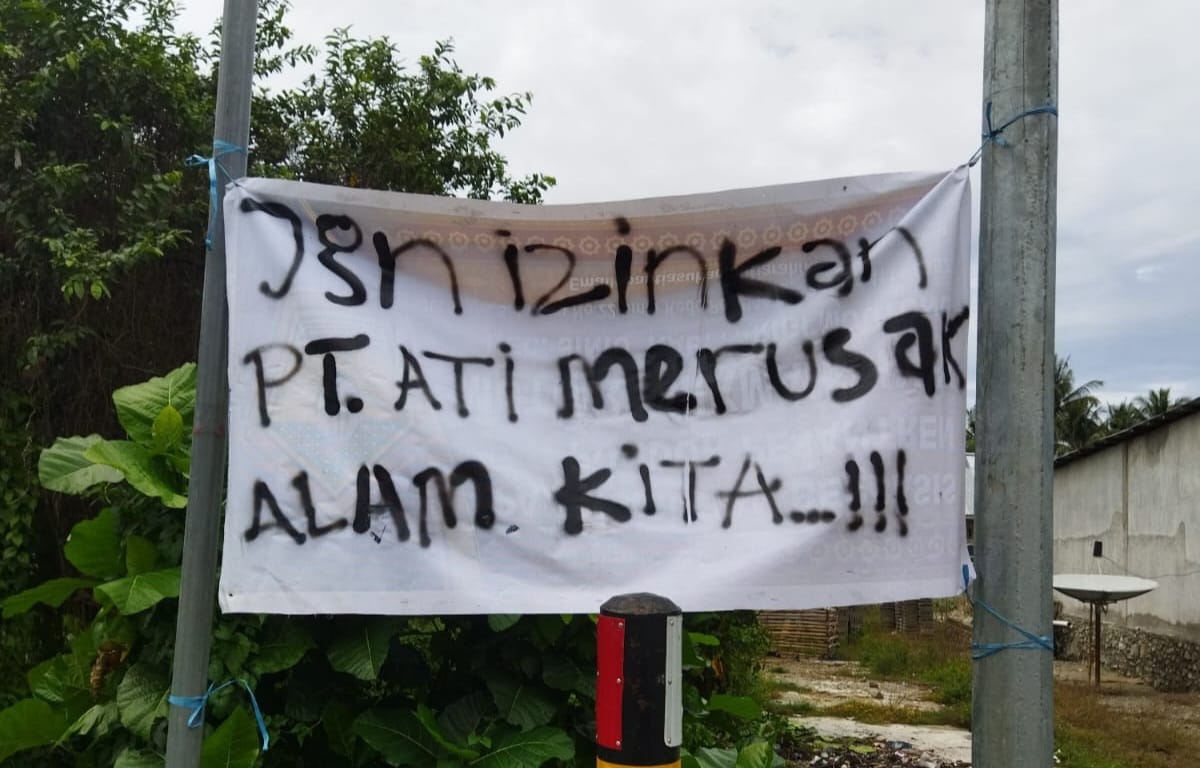 Jgn izinkan
PT. ATi merusak
ALAM KiTA...!!!